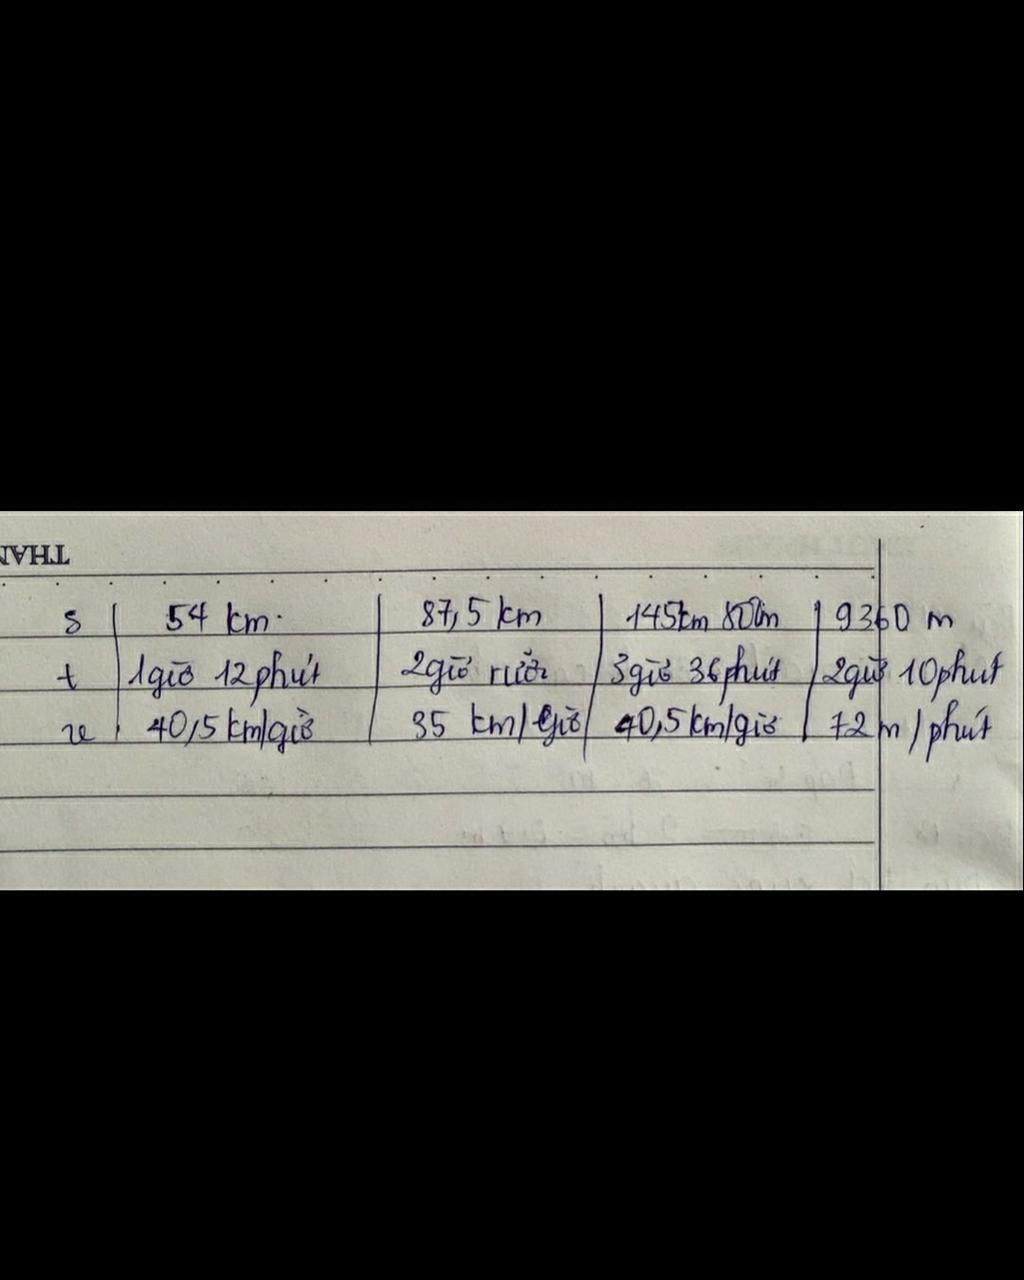 THAN
s 54 km. 87,5 km 145km 800m 9360 m
t 1giờ 12phút 2giờ rưỡi 3giờ 36phút 2giờ 10phút
v 40,5 km/giờ 35 km/giờ 40,5km/giờ 72 m/phút